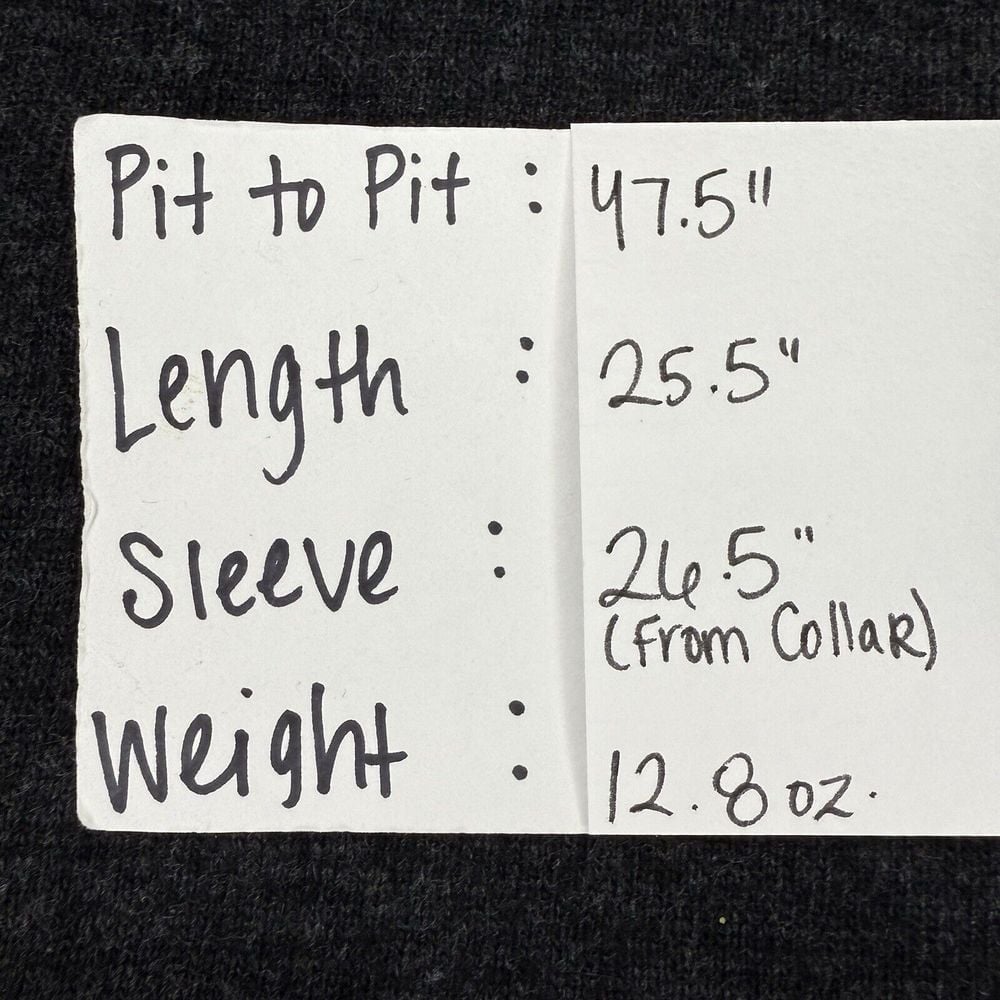 Pit to Pit : 47.5"
Length : 25.5"
Sleeve : 26.5"
(From Collar)
Weight : 12.8 oz.